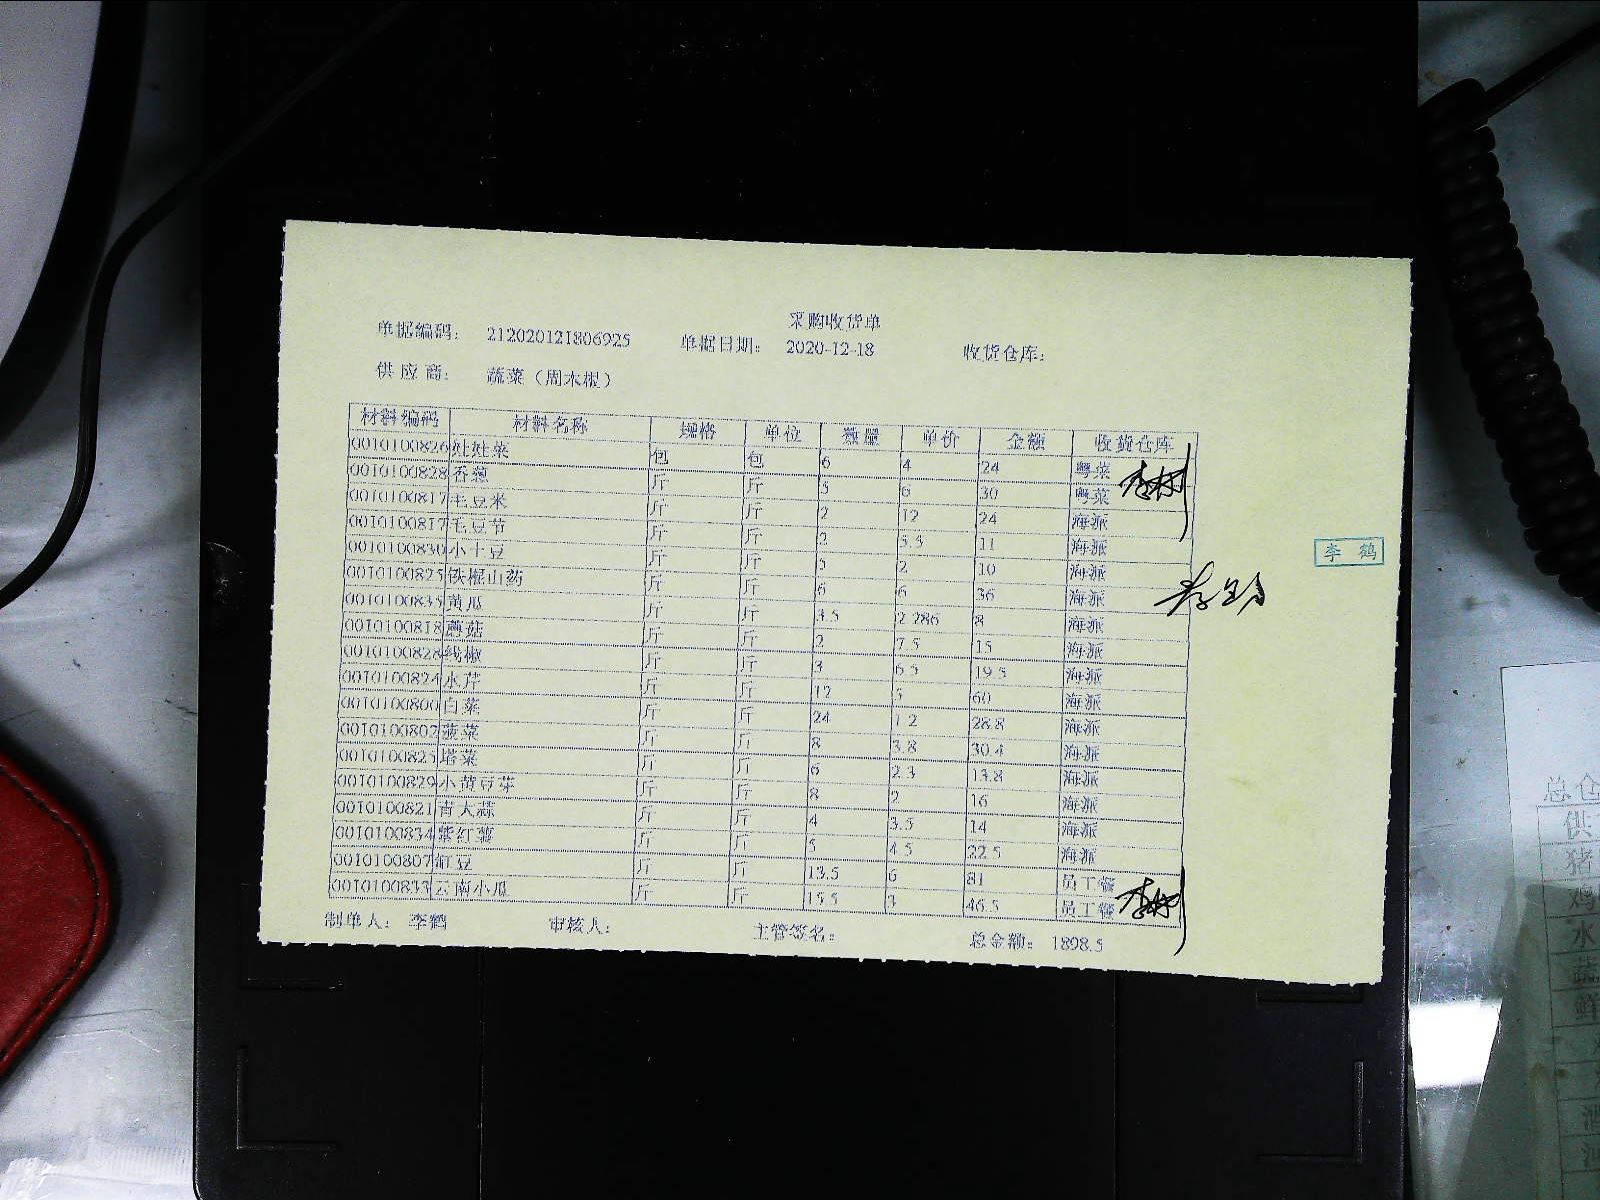 采购收货单
单据编码： 212020121806925 单据日期： 2020-12-18 收货仓库：
供应商： 蔬菜（周木根）
材料编码 材料名称 规格 单位 数量 单价 金额 收货仓库
0010100826 娃娃菜 包 包 6 4 24 粤菜
0010100828 香葱 斤 斤 5 6 30 粤菜
0010100817 毛豆米 斤 斤 2 12 24 海派
0010100817 毛豆节 斤 斤 2 5.5 11 海派
0010100830 小土豆 斤 斤 5 2 10 海派
0010100825 铁棍山药 斤 斤 6 6 36 海派
0010100835 黄瓜 斤 斤 3.5 2.286 8 海派
0010100818 蘑菇 斤 斤 2 7.5 15 海派
0010100828 线椒 斤 斤 3 6.5 19.5 海派
0010100824 水芹 斤 斤 12 5 60 海派
0010100800 白菜 斤 斤 24 1.2 28.8 海派
0010100802 菠菜 斤 斤 8 3.8 30.4 海派
0010100825 塔菜 斤 斤 6 2.3 13.8 海派
0010100829 小黄豆芽 斤 斤 8 2 16 海派
0010100821 青大蒜 斤 斤 4 3.5 14 海派
0010100834 紫红薯 斤 斤 5 4.5 22.5 海派
0010100807 豇豆 斤 斤 13.5 6 81 员工餐
0010100833 云南小瓜 斤 斤 15.5 3 46.5 员工餐
制单人： 李鹤 审核人： 主管签名： 总金额： 1898.5
李 鹤
总仓
供
猪
鸡
水
蔬
鲜